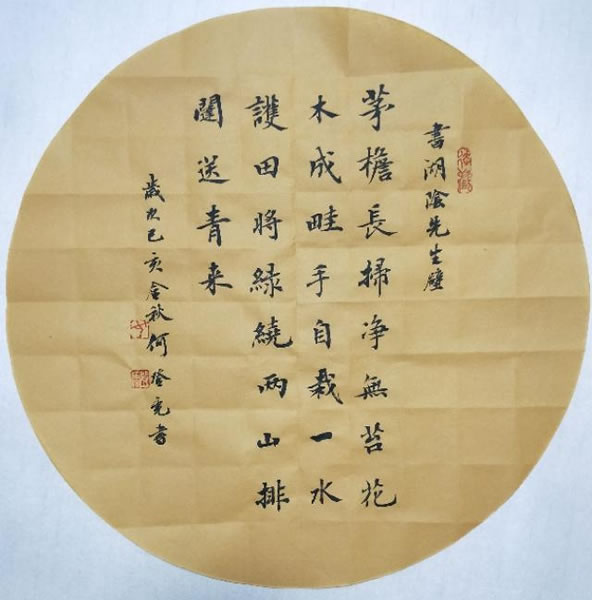 書湖陰先生壁
茅檐長掃净無苔花
木成畦手自栽一水
護田將緑繞兩山排
闥送青来
歲次己亥金秋何登亮書